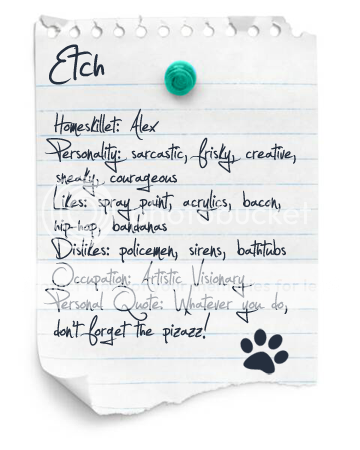 Etch
Homeskillet: Alex
Personality: sarcastic, frisky, creative,
sneaky, courageous
Likes: spray paint, acrylics, bacon,
hip-hop, bandanas
Dislikes: policemen, sirens, bathtubs
Occupation: Artistic Visionary
Personal Quote: Whatever you do,
don't forget the pizazz!